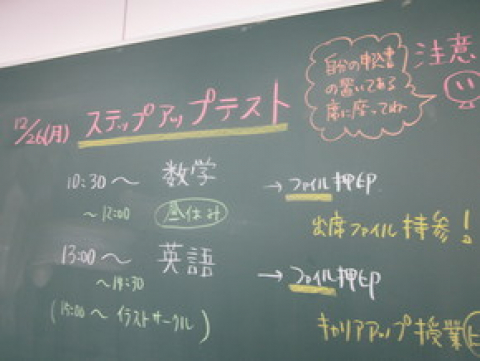 12/26(月) ステップアップテスト
注意
自分の申込書
の置いてある
席に座ってね
10:30〜 数学 → ファイル押印
〜12:00 昼休み
出席ファイル持参!
13:00〜 英語 → ファイル押印
〜14:30
(15:00〜 イラストサークル)
キャリアアップ授業